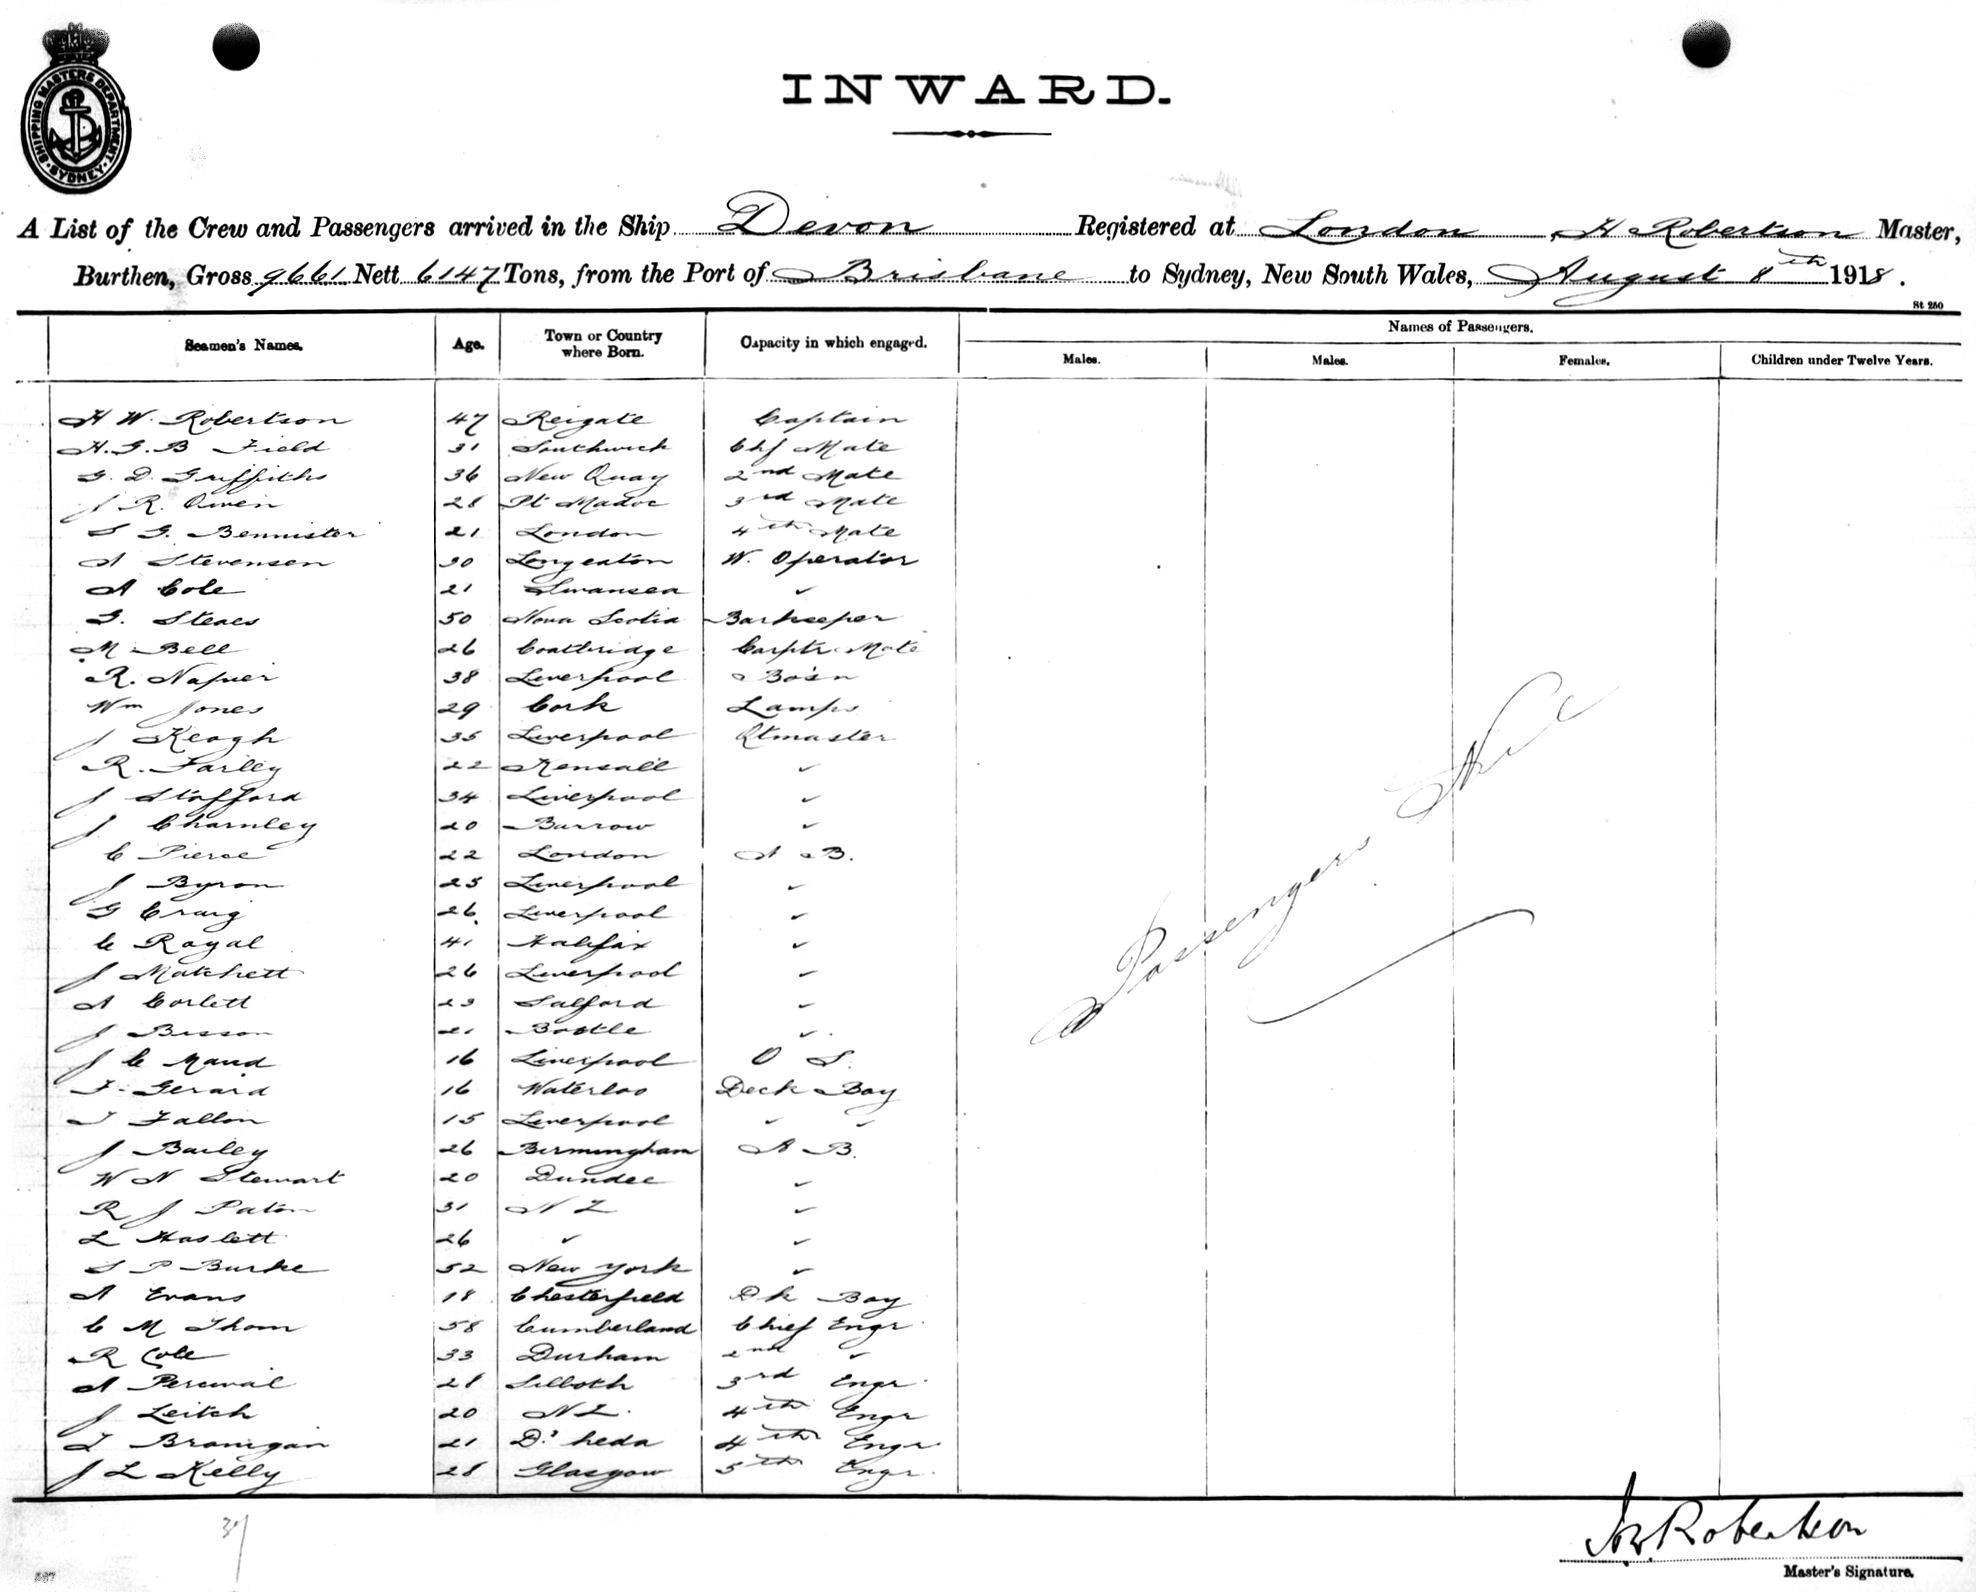 SHIPPING MASTERS DEPARTMENT · SYDNEY ·
INWARD.
A List of the Crew and Passengers arrived in the Ship Devon Registered at London, H Robertson Master,
Burthen, Gross 9661 Nett 6147 Tons, from the Port of Brisbane to Sydney, New South Wales, August 8th 1918.
St 250
Seamen's Names. Age. Town or Country where Born. Capacity in which engaged. Names of Passengers.
Males. Males. Females. Children under Twelve Years.
H W. Robertson 47 Reigate Captain
H. G. B Field 31 Southwick Chf Mate
G. D. Griffiths 36 New Quay 2nd Mate
J R. Owen 28 Pt Madoc 3rd Mate
S G. Bennister 21 London 4th Mate
A Stevensen 30 Longeaton W. Operator
A Cole 21 Swansea "
G. Steaes 50 Nova Scotia Barkeeper
M Bell 26 Coatbridge Carptr. Mate
R. Napier 38 Liverpool Bo's'n
Wm Jones 29 Cork Lamps
J Keogh 35 Liverpool Qtmaster
R. Farley 22 Rensall "
J Stafford 34 Liverpool "
J Charnley 20 Barrow "
C Pierce 22 London A B.
J Byron 25 Liverpool "
G Craig 26 Liverpool "
C Royal 41 Halifax "
J Matchett 26 Liverpool "
A Corlett 23 Salford "
J Bisson 21 Bootle "
J C Maud 16 Liverpool O S.
F. Gerard 16 Waterloo Deck Boy
T Fallon 15 Liverpool " "
J Bailey 26 Birmingham A B.
W N Stewart 20 Dundee "
R J Paton 31 N Z "
L Haslett 26 " "
S P Burke 52 New York "
A Evans 18 Chesterfield Dk Boy
C M Thom 58 Cumberland Chief Engr
R Cole 33 Durham 2nd "
A Percival 28 Silloth 3rd Engr
J Leitch 20 N Z. 4th Engr
T Branigan 21 D'heda 4th Engr
J L Kelly 28 Glasgow 5th Engr.
Passengers Nil
37
H.W. Robertson
Master's Signature.